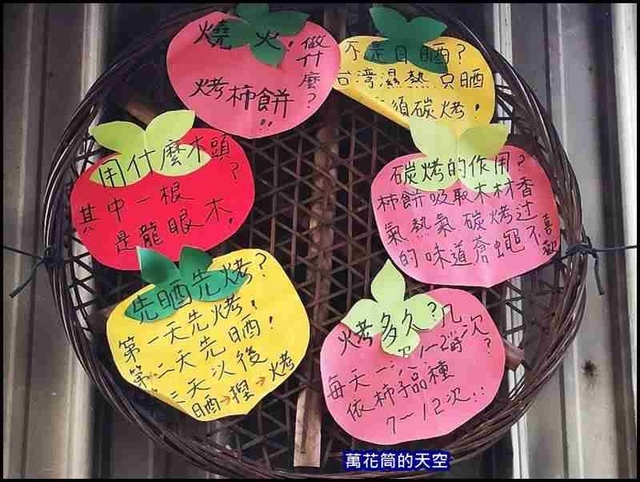 燒火，做什麼？
烤柿餅！！
不是日晒？
台湾濕熱只晒
須碳烤！
用什麼木頭？
其中一根
是龍眼木！
碳烤的作用？
柿餅吸取木材香
氣熱氣碳烤过
的味道蒼蠅不喜歡
先晒先烤？
第一天先烤！
第二天先晒！
三天以後
晒→捏→烤
火烤多久？几次？
每天一次1～2時
依柿子品種
7～12次：：
萬花筒的天空